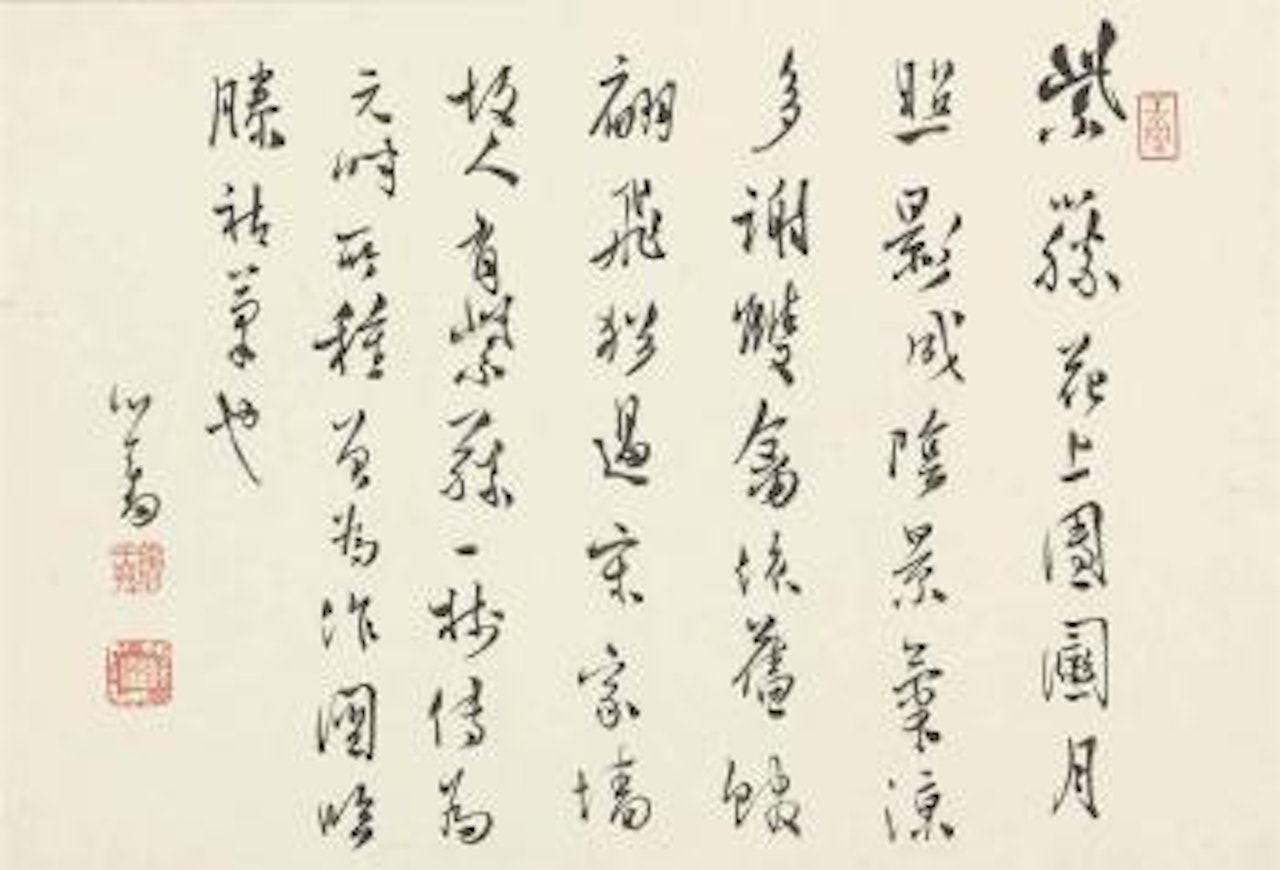 紫藤花上團圞月
照影成陰景氣涼
多謝雙禽依舊
翩飛猶過宋家墻
故人有紫藤一樹傳為
元時所種曾為作圖
藁也
心畬